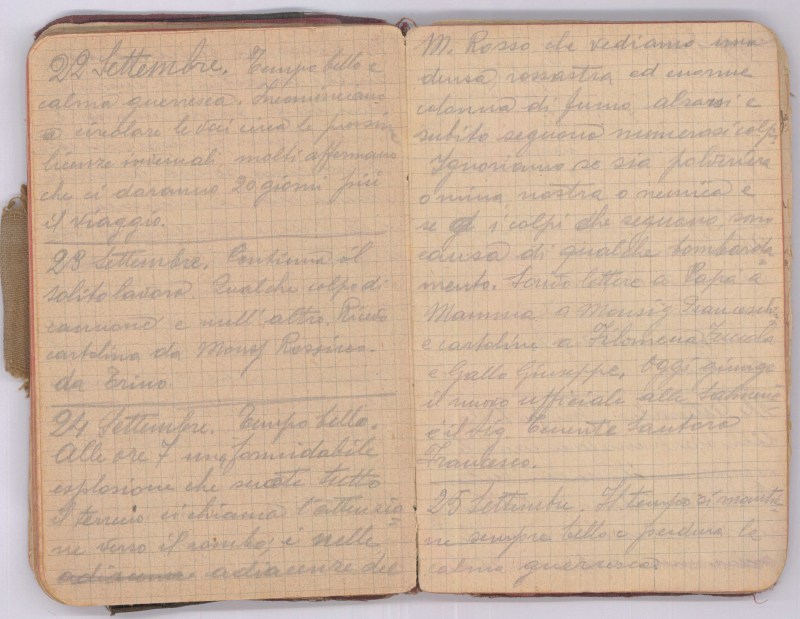 22 Settembre. Tempo bello e
calma guerresca. Incominciano
a circolare le voci circa le prossi
licenze invernali molti affermano
che ci daranno 20 giorni più
il viaggio.
23 Settembre. Continua il
solito lavoro. Qualche colpo di
cannone e null'altro. Ricevo
cartolina da
da Trino.
24 Settembre. Tempo bello.
Alle ore 7 una formidabile
esplosione che scuote tutto
il terreno ci chiama l'attenzio
ne verso il rombo; è nelle
adiacenze del
M. Rosso che vediamo una
densa rossastra ed enorme
colonna di fumo alzarsi e
subito seguono numerosi colpi
Ignoriamo se sia polveriera
o mina nostra o nemica e
se i colpi che seguono sono
causa di qualche bombarda
mento. Scrivo lettere a Papà a
Mamma a Monsig. Franceschi
e cartoline a Filomena
e Gallo Giuseppe. Oggi giunge
il nuovo ufficiale alle
è il Sig. Tenente Santoro
Francesco.
25 Settembre. Il tempo si mantie
ne sempre bello e perdura la
calma guerresca